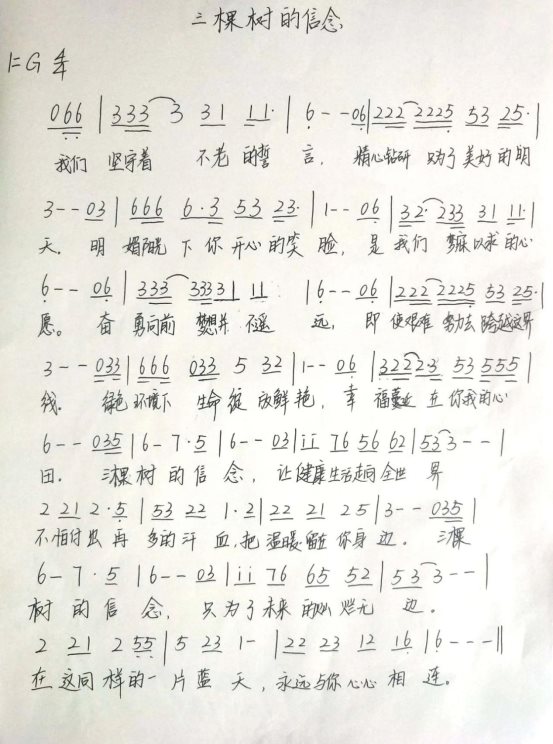 三棵树的信念
1=G 4/4
066 | 333 3 31 11· | 6 - - 06 | 222 2225 53 25· |
我们 坚守着 不老的誓言, 精心钻研 只为了美好的明
3 - - 03 | 666 6·3 53 23· | 1 - - 06 | 32· 233 31 11· |
天. 明媚阳光下你开心的笑脸, 是我们梦寐以求的心
6 - - 06 | 333 33331 11 | 6 - - 06 | 222 2225 53 25· |
愿。 奋勇向前 梦想并不遥远, 即使艰难 努力去跨越这界
3 - - 033 | 666 033 5 32 | 1 - - 06 | 32223 53 555 |
线. 绿色环境下 生命绽放鲜艳, 幸福蔓延在你我的心
6 - - 035 | 6 - 7·5 | 6 - - 03 | ii 76 56 62 | 533 - - |
田. 三棵树的信念, 让健康生活走向全世界
2 21 2·5 | 53 22 1·2 | 22 21 25 | 3 - - 035 |
不怕付出再多的汗血,把温暖留在你身边. 三棵
6 - 7·5 | 6 - - 03 | ii 76 65 52 | 533 - - |
树的信念, 只为了未来的灿烂无边。
2 21 2 55 | 5 23 1 - | 22 23 12 16 | 6 - - - ‖
在这同样的一片蓝天,永远与你心心相连。